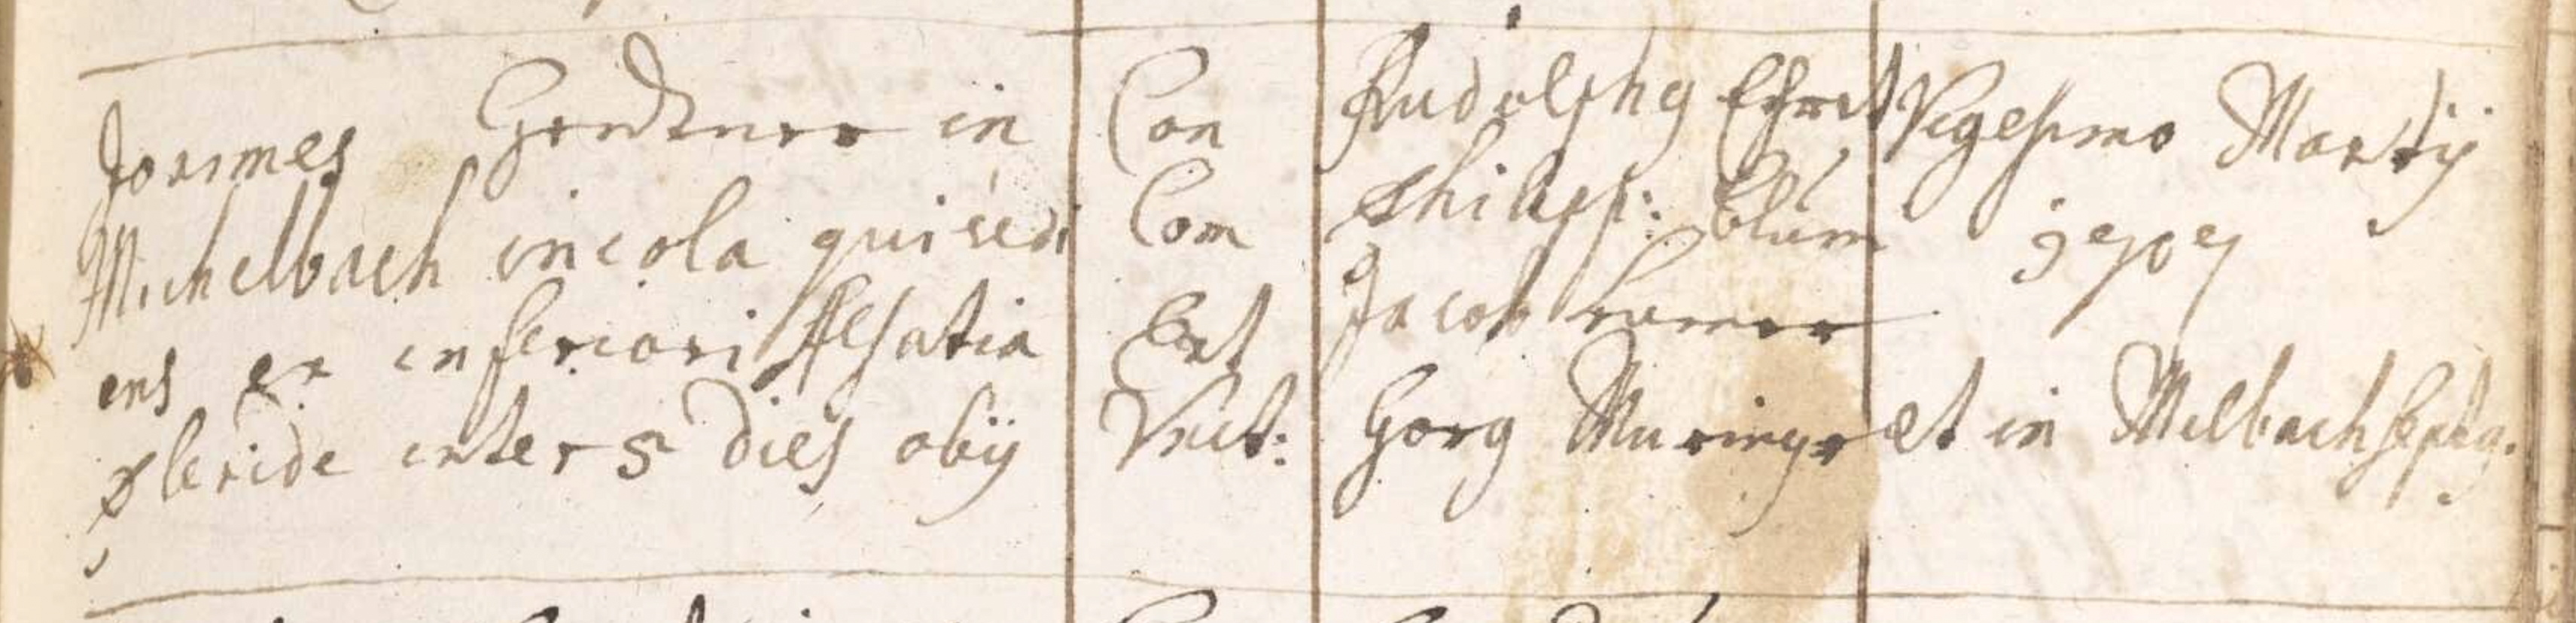 Joannes Gerdtner in
Michelbach incola qui redi
ens ex inferiori Alsatia
pleride inter 5 dies obij
Con
Com
Ext
Unct:
Rudolphg Ehret
Philipp: Blum
Jacob
Gorg Muringr
Vigesimo Martij
1707
et in Milbach sepltg.